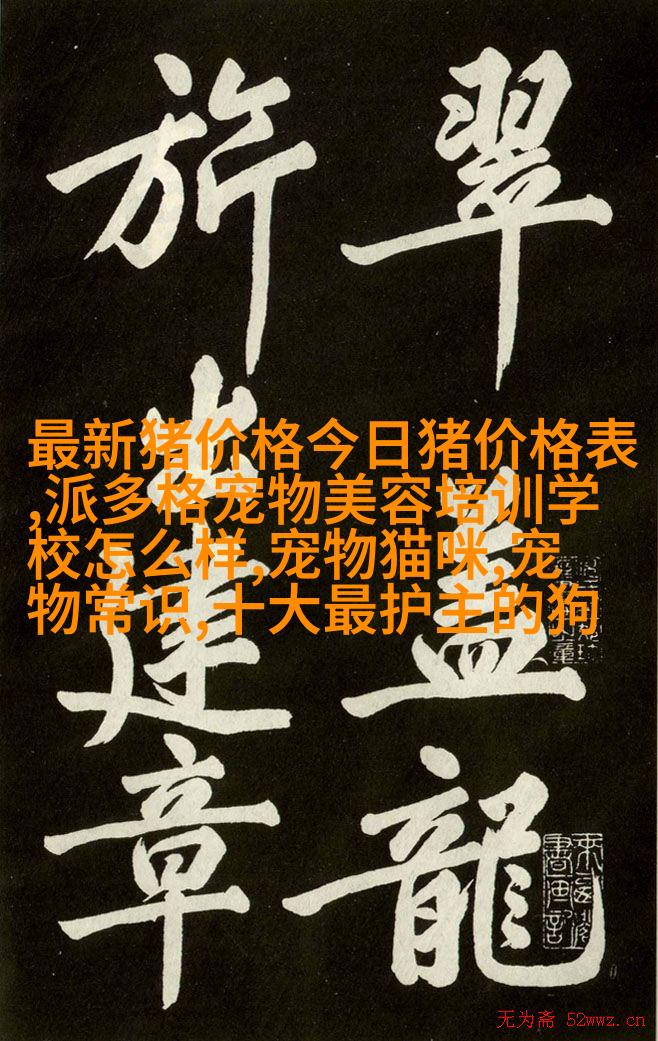 翠盖龍
旂出建章
最新猪价格今日猪价格表
,派多格宠物美容培训学
校怎么样,宠物猫咪,宠
物常识,十大最护主的狗
无为斋 52wwz.cn